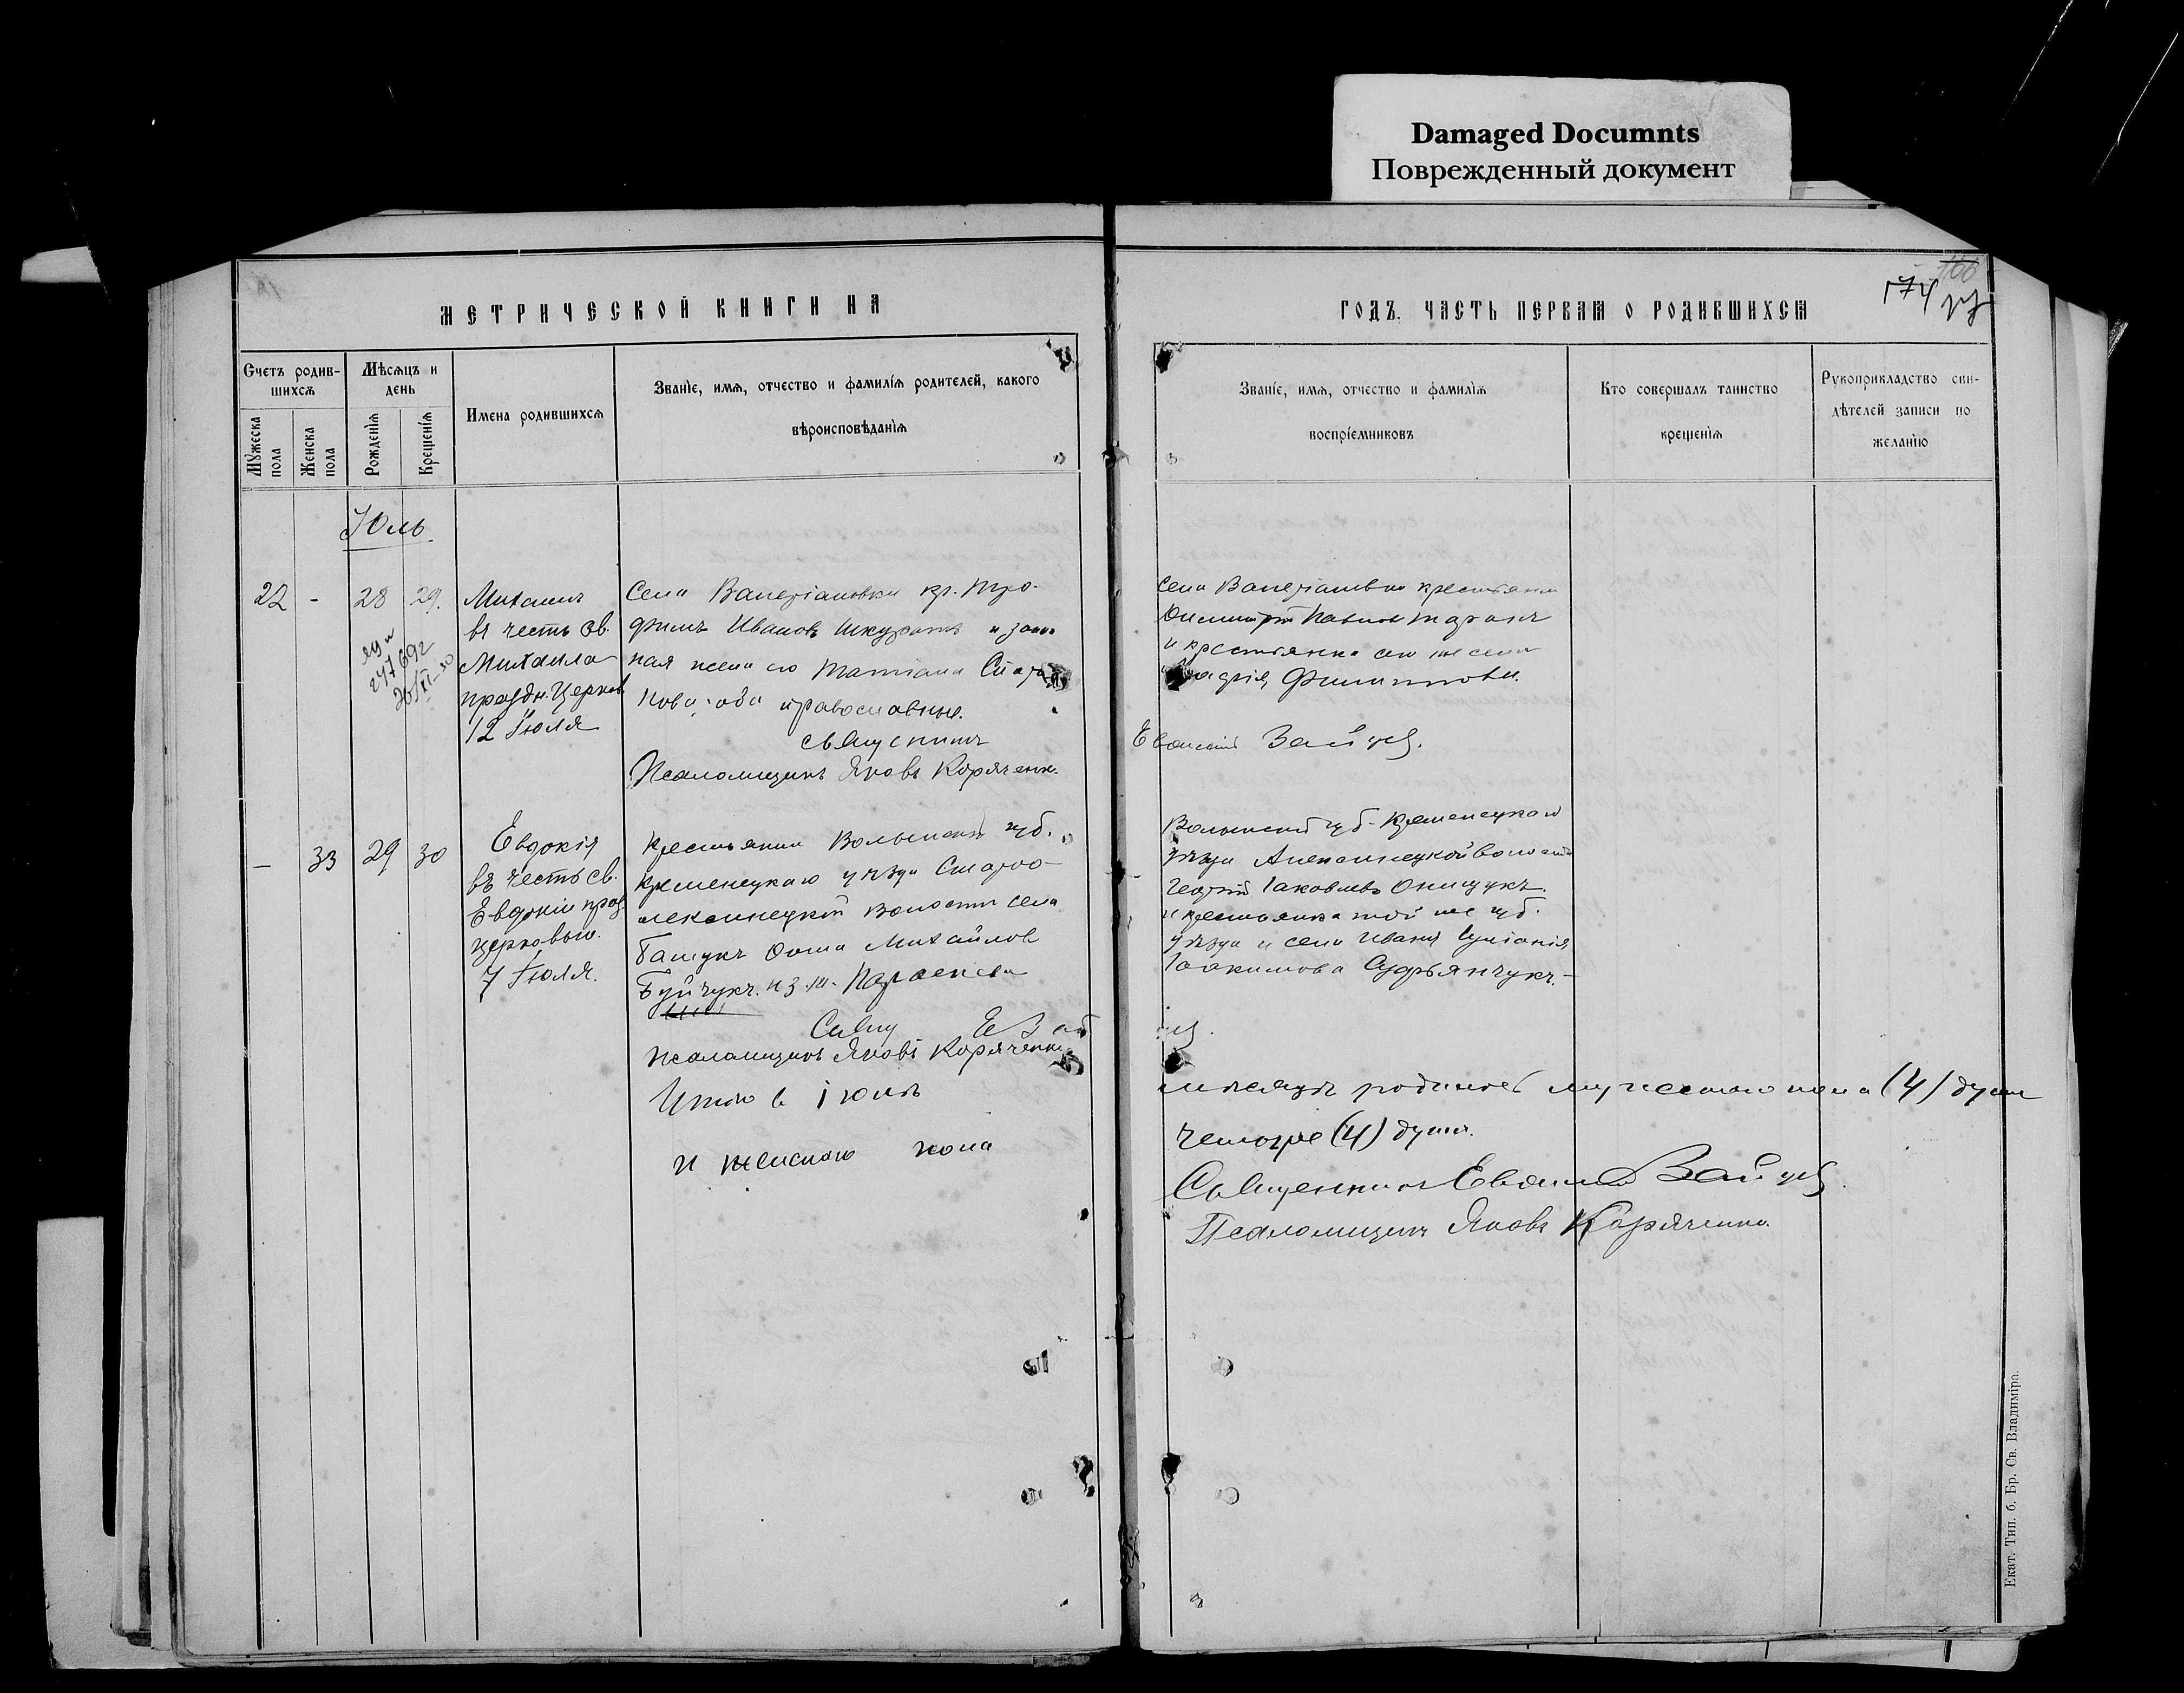 Damaged Documnts
Поврежденный документ
166
174
МЕТРИЧЕСКОЙ КНИГИ НА
ГОДЪ. ЧАСТЬ ПЕРВАЯ О РОДИВШИХСЯ
Счетъ родив-
шихся
Мѣсяцъ и
день
Мужеска
пола
Женска
пола
Рожденія
Крещенія
Имена родившихся
Званіе, имя, отчество и фамилія родителей, какого
вѣроисповѣданія
Званіе, имя, отчество и фамилія
воспріемниковъ
Кто совершалъ таинство
крещенія
Рукоприкладство сви-
дѣтелей записи по
желанію
Юль.
22 - 28 29.
Михаилъ
въ честь св.
Михаила
праздн. Церков
12 Іюля
Села Валеріановки кр. Тро-
фимъ Ивановъ Шкуратъ и закон
ная жена его Татіана
оба православные.
Псаломщикъ Яковъ Коряченко.
села Валеріановки крестьянинъ
Димитрій Павловъ Таранъ
и крестьянка сего же села
Филиппова.
Евфимій Зайцевъ.
- 33 29 30
Евдокія
въ честь св.
Евдокіи праз
церковью.
7 Іюля.
Крестьянинъ Волынской губ.
Кременецкаго уѣзда Старо-
алексинецкой волости села
Башукъ Ѳома Михайловъ
Буйчукъ. и з. ж. Параскева
Свящ Е Зай
Псаломщикъ Яковъ Коряченко
Волынской губ. Кременецкаго
уѣзда Алексинецкой волости
Георгій Іаковлевъ Онищукъ.
и крестьянка той же губ.
уѣзда и села Іуліанія
Іоакимова
цевъ.
Итого в іюлѣ
мѣсяцѣ родилось мужескаго пола (4) душ
и женскаго пола
четыре (4) души.
Священникъ Евфимій Зайцевъ.
Псаломщикъ Яковъ Коряченко.
Екат. Тип. б. Бр. Св. Владиміра.